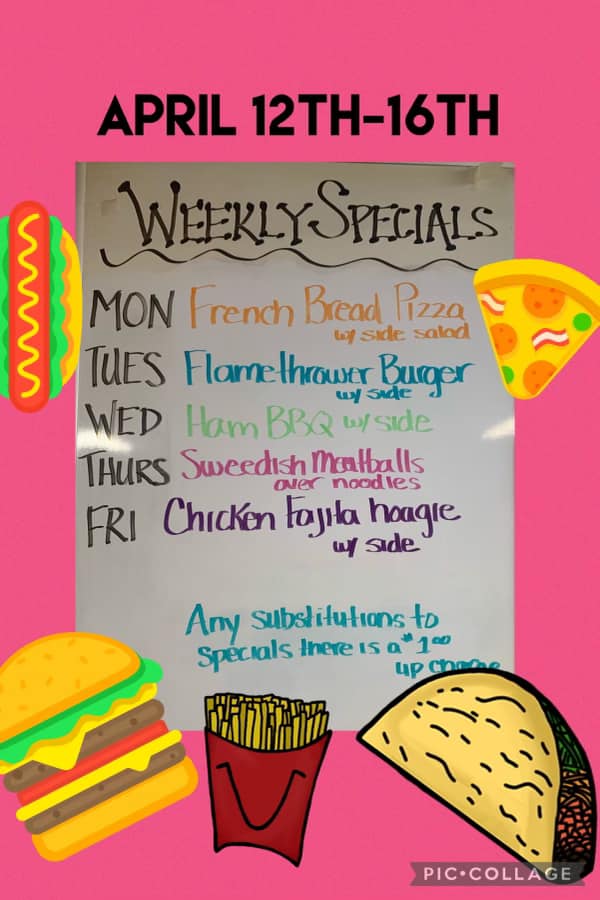 APRIL 12TH-16TH
WEEKLY SPECIALS
MON French Bread Pizza
w/ side salad
TUES Flamethrower Burger
w/ side
WED Ham BBQ w/ side
THURS Sweedish Meatballs
over noodles
FRI Chicken Fajita hoagie
w/ side
Any substitutions to
specials there is a $1.00
up charge
PIC•COLLAGE